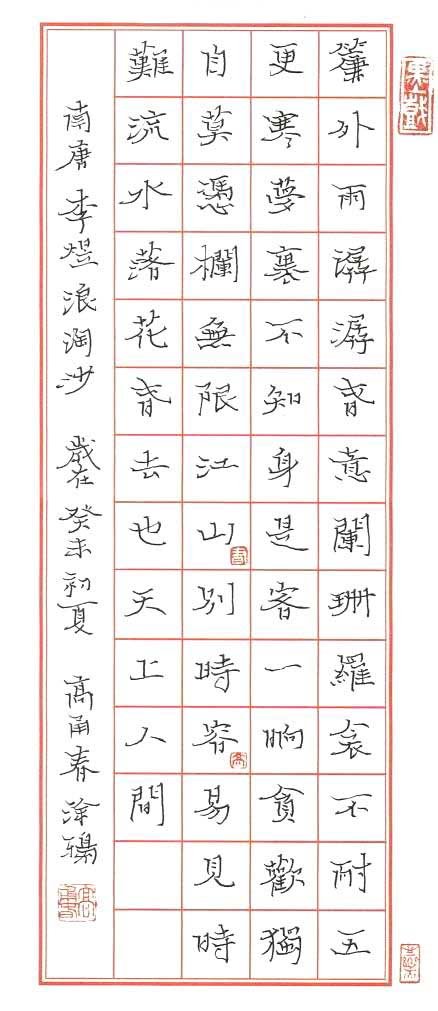 簾外雨潺潺春意闌珊羅衾不耐五
更寒夢裏不知身是客一晌貪歡獨
自莫憑欄無限江山別時容易見時
難流水落花春去也天上人間
南唐李煜浪淘沙 歲在癸未初夏 高甬春涂鴉